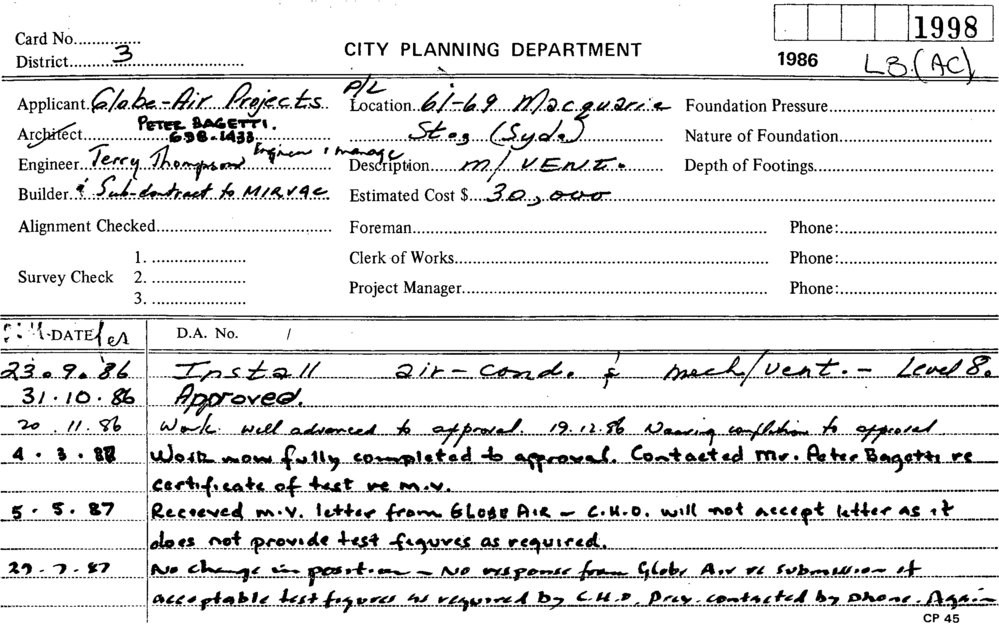 1998
Card No.
CITY PLANNING DEPARTMENT
District 3
1986
LB.(AC)
Applicant Globe-Air Projects P/L
Location 61-69 Macquarie
Foundation Pressure
Architect PETER BAGETTI.
698-1433
St (Syd.)
Nature of Foundation
Engineer Terry Thompson Engineer & manage
Description m/VENT.
Depth of Footings
Builder & Sub-contract to MIRVAC
Estimated Cost $ 30,000
Alignment Checked
Foreman
Phone:
Clerk of Works
Phone:
Survey Check 1.
2.
3.
Project Manager
Phone:
DATE
D.A. No. /
23.9.86 Install air-cond. & mech/vent. - Level 8.
31.10.86 Approved.
20.11.86 Work well advanced to approval. 19.12.86 Nearing completion to approval
4.3.87 Work now fully completed to approval. Contacted Mr. Peter Bagetti re
certificate of test re m.v.
5.5.87 Recieved m.v. letter from GLOBE AIR - C.H.O. will not accept letter as it
does not provide test figures as required.
29.7.87 No change in position - No response from Globe Air re submission of
acceptable test figures as required by C.H.O. Prev. contacted by phone. Again
CP 45